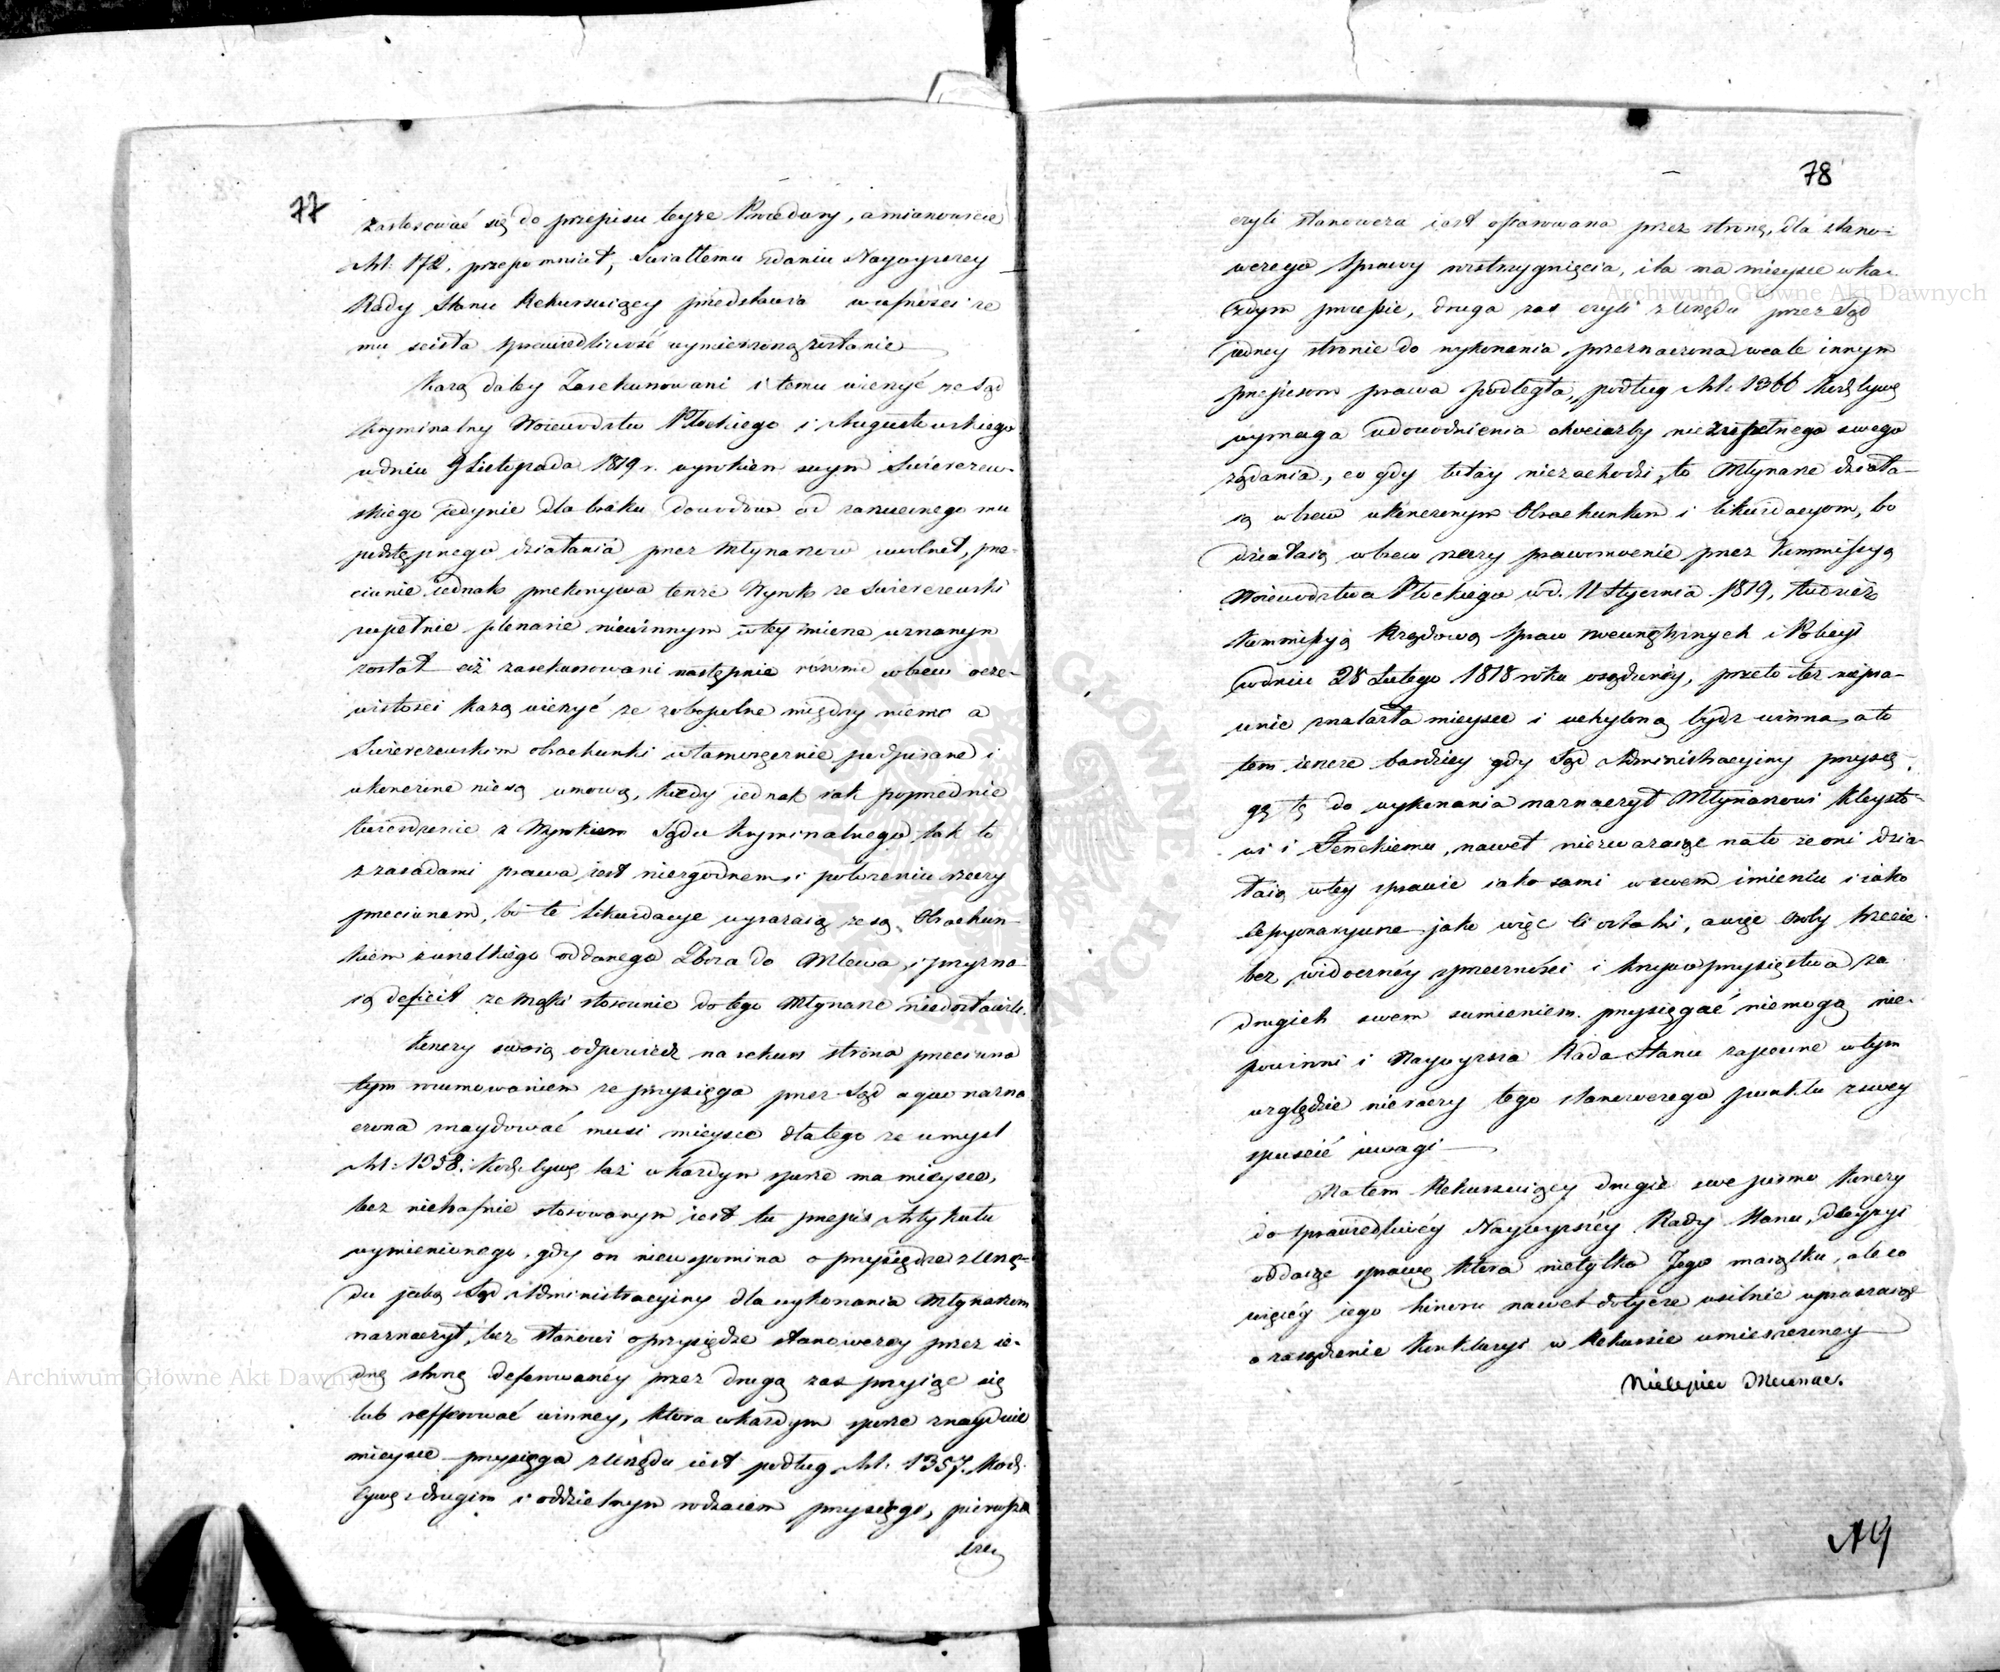 77
zastosować się do przepisu teyże Procedury, a mianowicie
Art: 172. przepomniał, Światłemu zdaniu Naywyższey
Rady Stanu Rekursuiący przedstawia w ufności że
mu scisła sprawiedliwość wymierzoną zostanie
Każą daley Zarekurowani i temu wierzyć że Sąd
Kryminalny Woiewodztw Płockiego i Augustowskiego
w dniu 9 Listopada 1819 r. wyrokiem swym Swierczew-
skiego iedynie dla braku dowodów od zarzuconego mu
podstępnego działania przez Młynarzow uwolnił, prze-
ciwnie iednak przekonywa tenże Wyrok ze Swierczewski
zupełnie plenarie niewinnym w tey mierze uznanym
został ciż zarekursowani następnie równie wbrew ocze-
wistości każą wierzyć że zobopolne między niemi a
Swierczewskim obrachunki własnoręcznie podpisane i
ukończone nie są umową, kiedy iednak iak poprzednie
twierdzenie z Wyrokiem Sądu Kryminalnego tak to
z zasadami prawa iest niezgodnem i położeniu rzeczy
przeciwnem, bo te likwidacye wyrażaią że są Obrachun-
kiem z wszelkiego oddanego Zboża do Mlewa, i przyzna-
ią deficit ze mąki stosownie do tego Młynarze niedostawili.
Kończy swoią odpowiedź na rekurs strona przeciwna
tym rozumowaniem że przysięga przez Sąd a quo nazna-
czona znaydować musi mieysce dlatego że w myśl
Art: 1358. Kod: Cyw: taż w każdym sporze ma mieysce,
lecz nietrafnie stosowanym iest tu przepis Artykułu
wymienionego, gdy on niewspomina o przysiędze z Urzę-
du jaką Sąd Administracyiny dla wykonania Młynarzom
naznaczył, lecz stanowi o przysiędze stanowczey przez ie-
dnę stronę deferowanéy przez drugą zaś przysiąc się
lub refferować winney, która w każdym sporze znayduie
mieysce przysięga z Urzędu iest podług Art: 1357. Kod:
Cyw: drugim i oddzielnym rodzaiem przysięgi, pierwsza
czyli
78
czyli stanowcza iest ofiarowana przez stronę, dla stano-
wczego Sprawy rozstrzygnięcia, i ta ma mieysce w ka-
żdym procesie, druga zaś czyli z Urzędu przez Sąd
jedney stronie do wykonania przeznaczona wcale innym
przepisom prawa podległa, podług Art: 1366 Kod: Cyw:
wymaga udowodnienia chociażby niezupełnego swego
żądania, co gdy tutay niezachodzi, to Młynarze działa-
ią wbrew ukończonym Obrachunkom i likwidacyom, bo
działaią wbrew rzeczy prawomocnie przez Kommissyą
Woiewodztwa Płockiego w d. 11 Stycznia 1819, tudzież
Kommissyą Rządową Spraw Wewnętrznych i Policyi
w dniu 28 Lutego 1818 roku osądzonéy, przeto też niepra-
wnie znalazła mieysce i uchyloną bydź winna, a to
tem ieszcze bardziey gdy Sąd Administracyiny przysię-
gę tę do wykonania naznaczył Młynarzowi Kleysto-
wi i Fenckiemu, nawet niezważaiąc na to że oni dzia-
łaią w tey sprawie iako sami w swem imieniu i iako
Cessyonaryusze jako więc Ci ostatni, a więc osoby trzecie
bez widocznéy sprzeczności i krzywoprzysięstwa za
drugich swem sumieniem przysięgać niemogą nie-
powinni i Naywyższa Rada Stanu zapewne w tym
względzie nieraczy tego stanowczego punktu z swey
spuścić uwagi
Na tem Rekursuiący drugie swe pismo kończy
do sprawiedliwéy Naywyższéy Rady Stanu, decyzyi
oddaiąc sprawę która nietylko Jego maiątku, ale co
więcéy iego honoru nawet dotycze usilnie upraszaiąc
o rozsądzenie Konkluzyi w Rekursie umieszczoney
Mecenas.